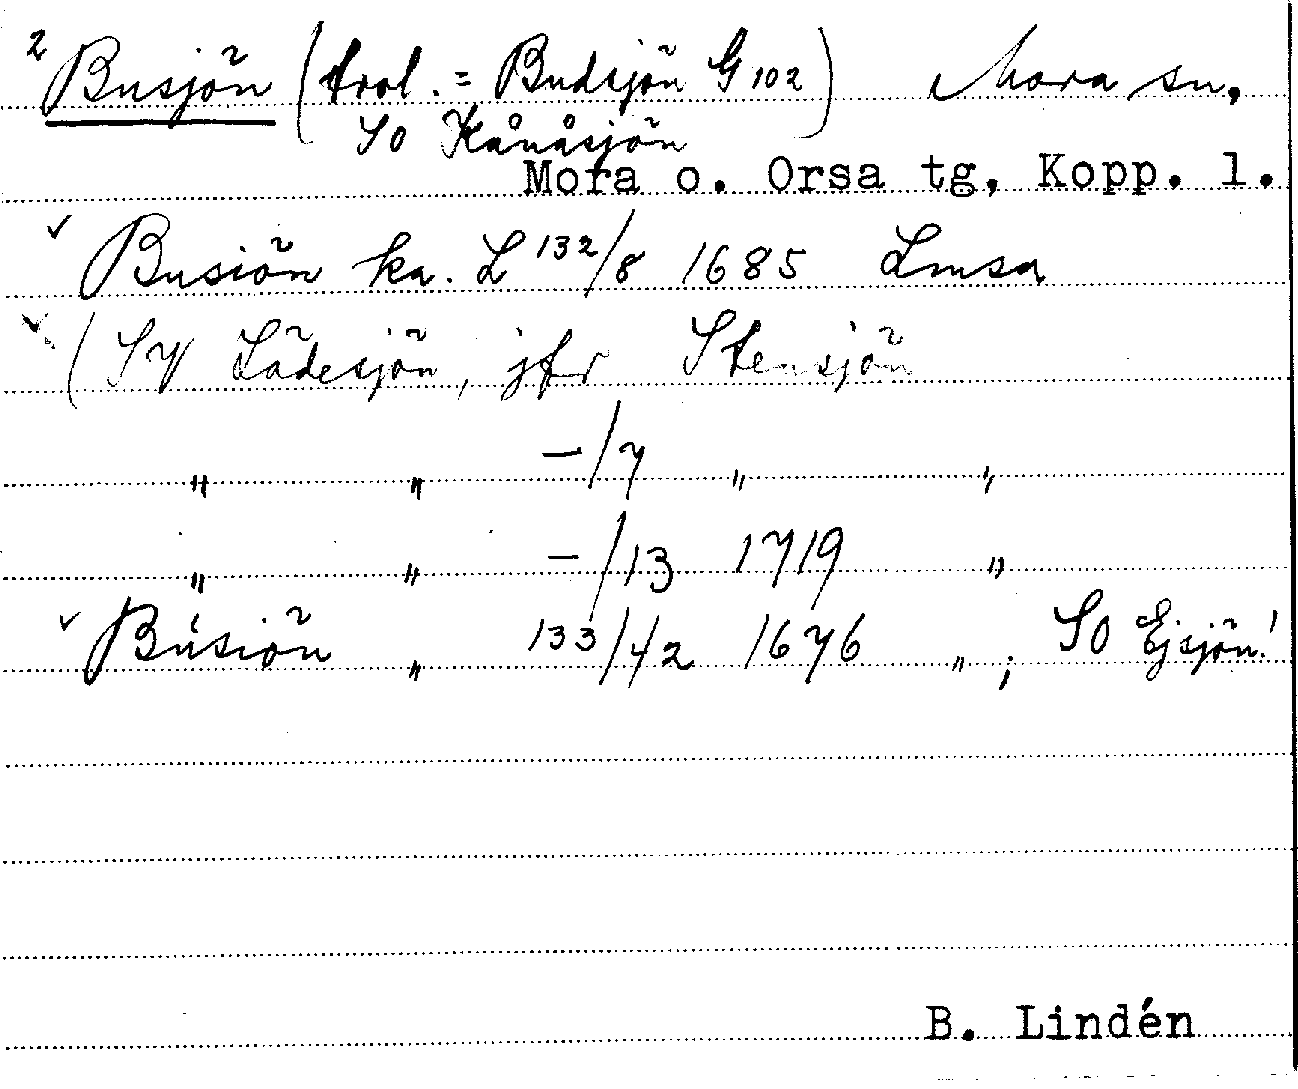 2 Busjön (trol. = Budsjön G 102) Mora sn,
SO Kånåsjön
Mora o. Orsa tg, Kopp. l.
Busiön ka. L 132/8 1685 Lmsa
(SV Lädesjön, jfr Stensjön
" " -/7 " "
" " -/13 1719 "
Busiön " 133/42 1676 ", SO Ejsjön!
B. Lindén